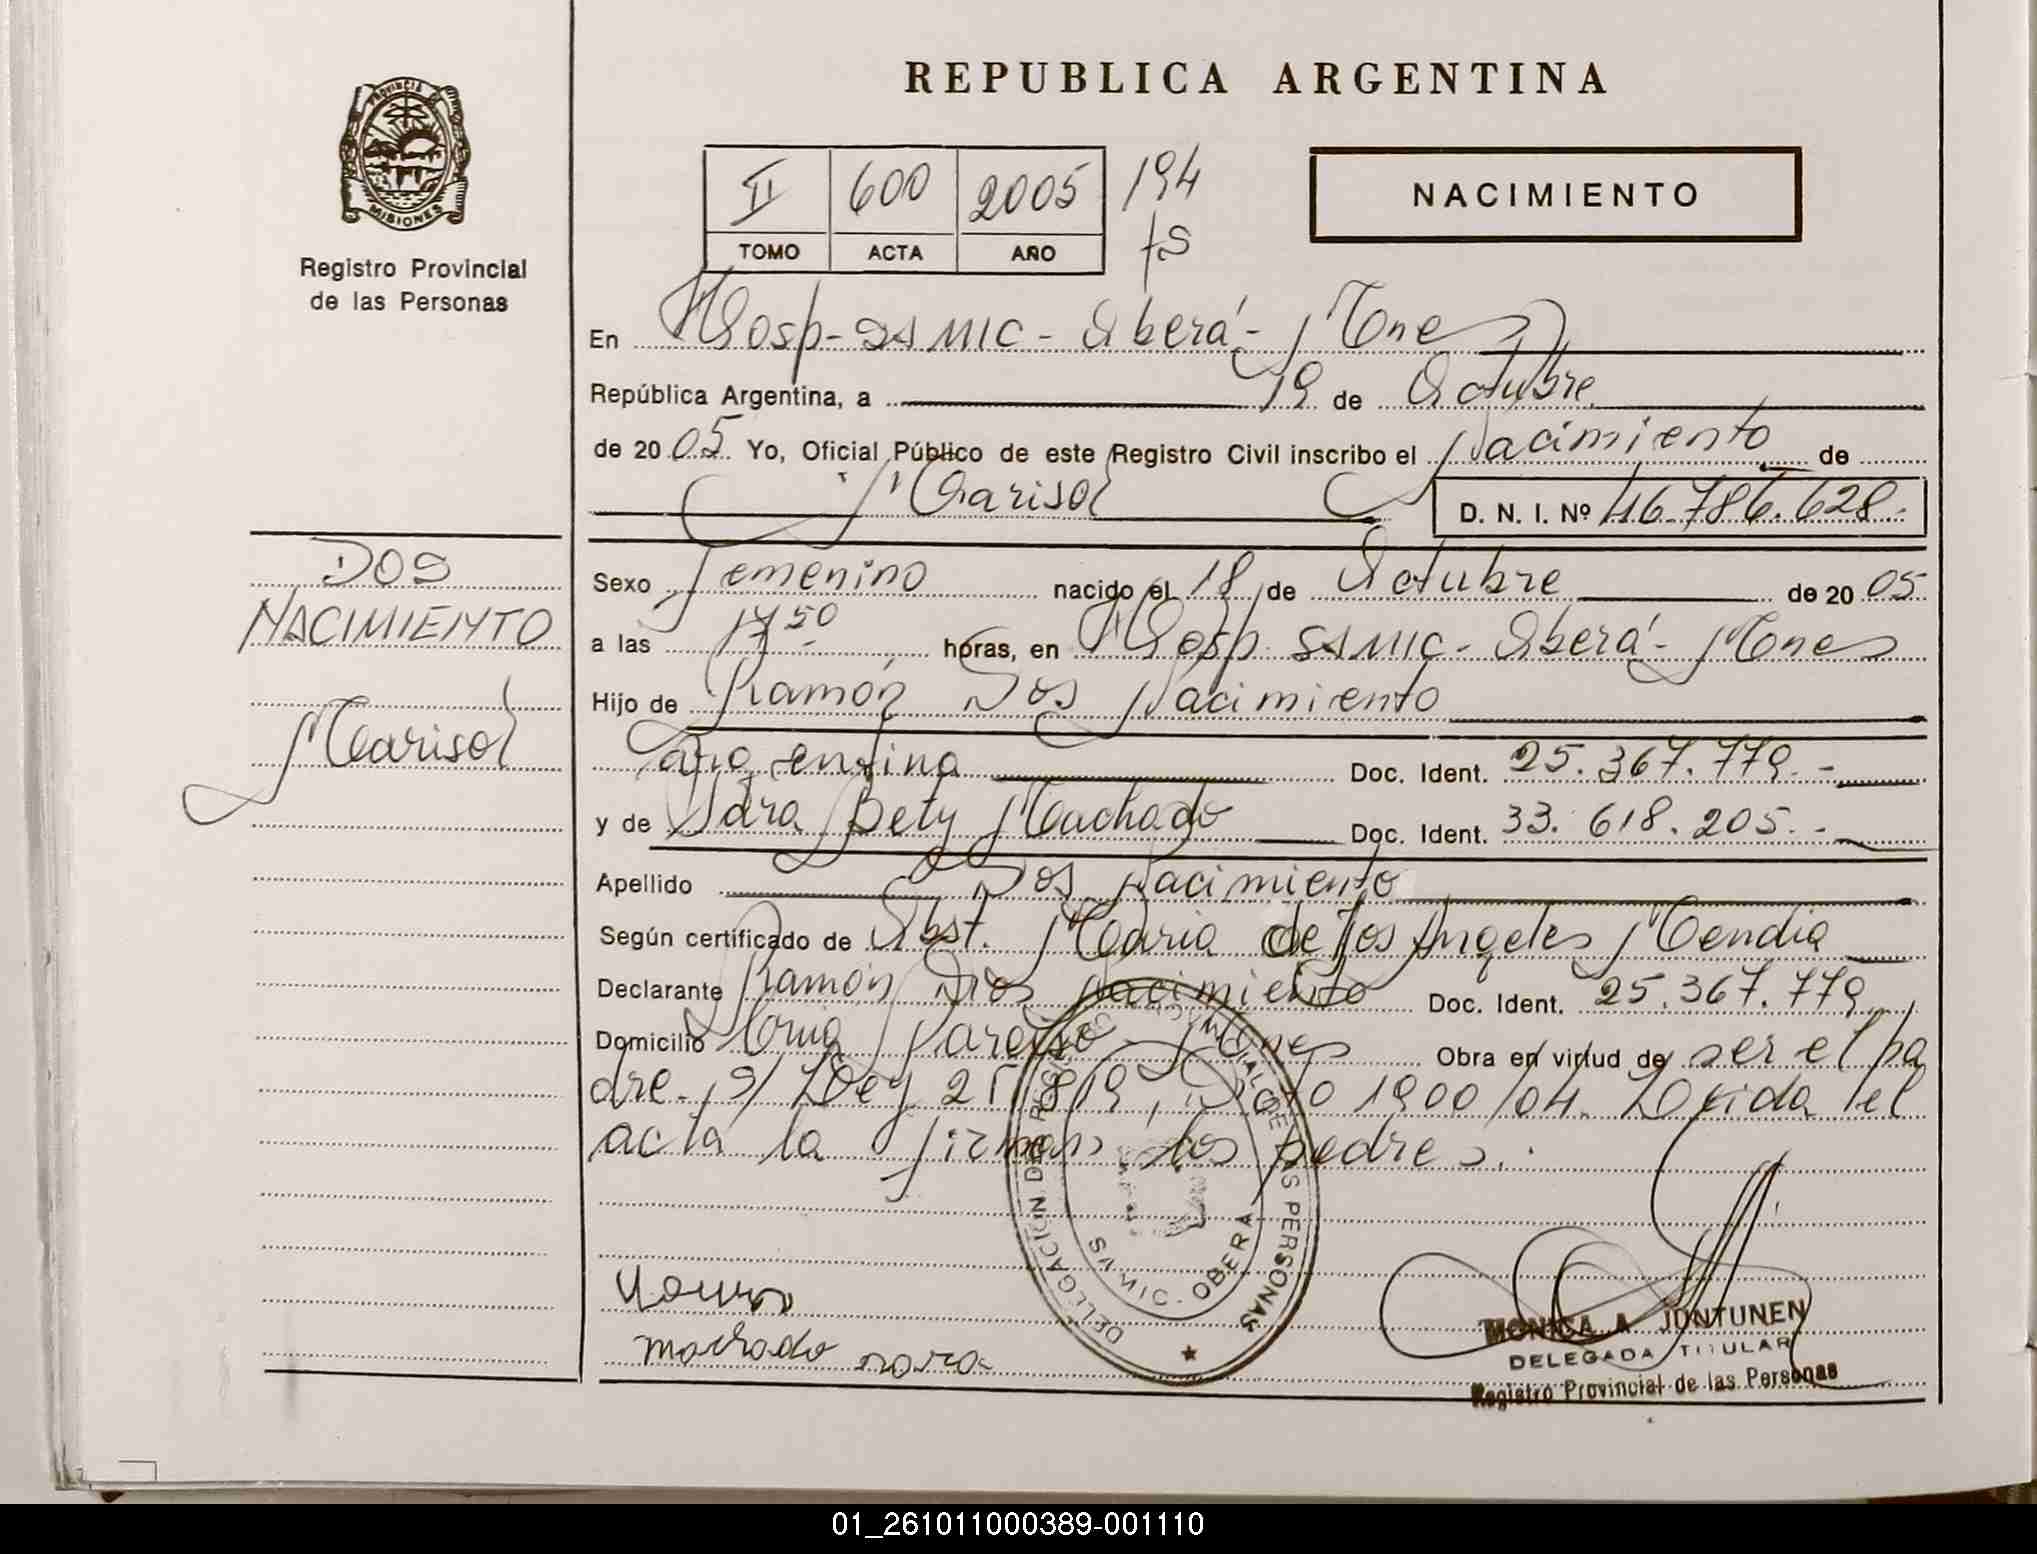 REPUBLICA ARGENTINA
PROVINCIA DE MISIONES
Registro Provincial
de las Personas
II 600 2005 194
TOMO ACTA AÑO fs
NACIMIENTO
En Hosp-SAMIC-Oberá-Mnes
República Argentina, a 19 de Octubre
de 2005 Yo, Oficial Público de este Registro Civil inscribo el Nacimiento de
Marisol D. N. I. Nº 46.786.628.-
DOS
NACIMIENTO
Marisol
Sexo Femenino nacido el 18 de Octubre de 2005
a las 17 50 horas, en Hosp. SAMIC-Oberá-Mnes
Hijo de Ramón Dos Nacimiento
argentina Doc. Ident. 25.367.779.-
y de Bety Machado Doc. Ident. 33.618.205.-
Apellido Dos Nacimiento
Según certificado de Obst. Maria de los Angeles Mendia
Declarante Ramón Dos Nacimiento Doc. Ident. 25.367.779
Domicilio Paraiso-Mnes Obra en virtud de ser el pa
dre. s/ Ley 25.819, Dcto 1900/04. Leida el
acta la firman los padres.
DELEGACION DEL REGISTRO PROVINCIAL DE LAS PERSONAS
SAMIC - OBERA
machado
MONICA A. JUNTUNEN
DELEGADA TITULAR
Registro Provincial de las Personas
01_261011000389-001110